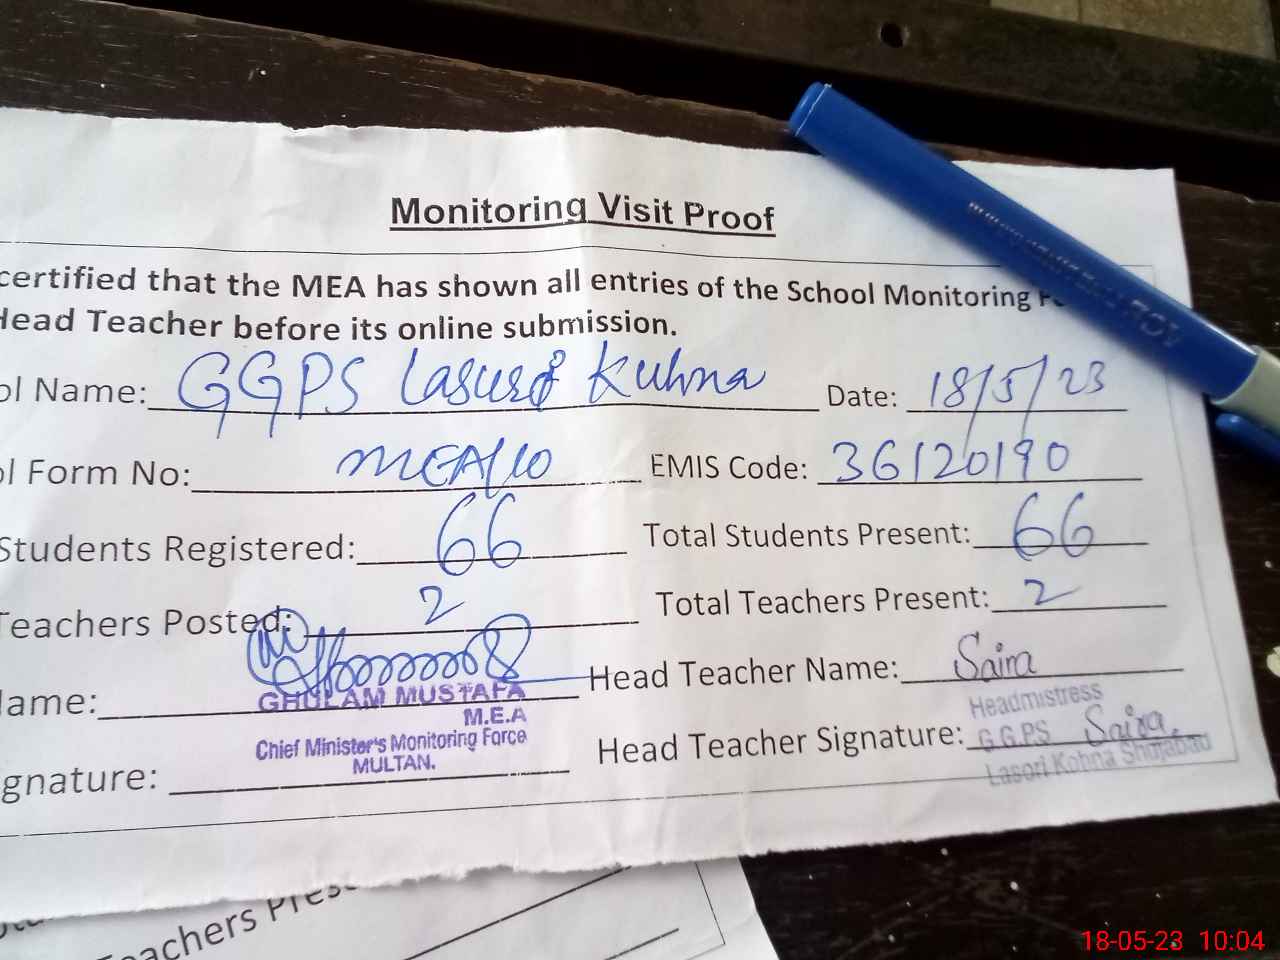 Monitoring Visit Proof
certified that the MEA has shown all entries of the School Monitoring
Head Teacher before its online submission.
ol Name: GGPS Lasuri Kuhna Date: 18/5/23
ol Form No: MEA/10 EMIS Code: 36120190
Students Registered: 66 Total Students Present: 66
Teachers Posted: 2 Total Teachers Present: 2
Name: Head Teacher Name: Saira
GHULAM MUSTAFA
M.E.A
Chief Minister's Monitoring Force
MULTAN.
gnature: Head Teacher Signature: Saira
Headmistress
G.G.P.S
Lasori Kohna Shujabad
Teachers Pres
18-05-23 10:04